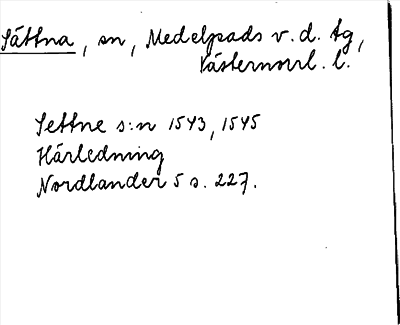 Sättna, sn, Medelpads v. d. tg,
Västernorrl. l.
Settne s:n 1543, 1545
Härledning
Nordlander 5 s. 227.